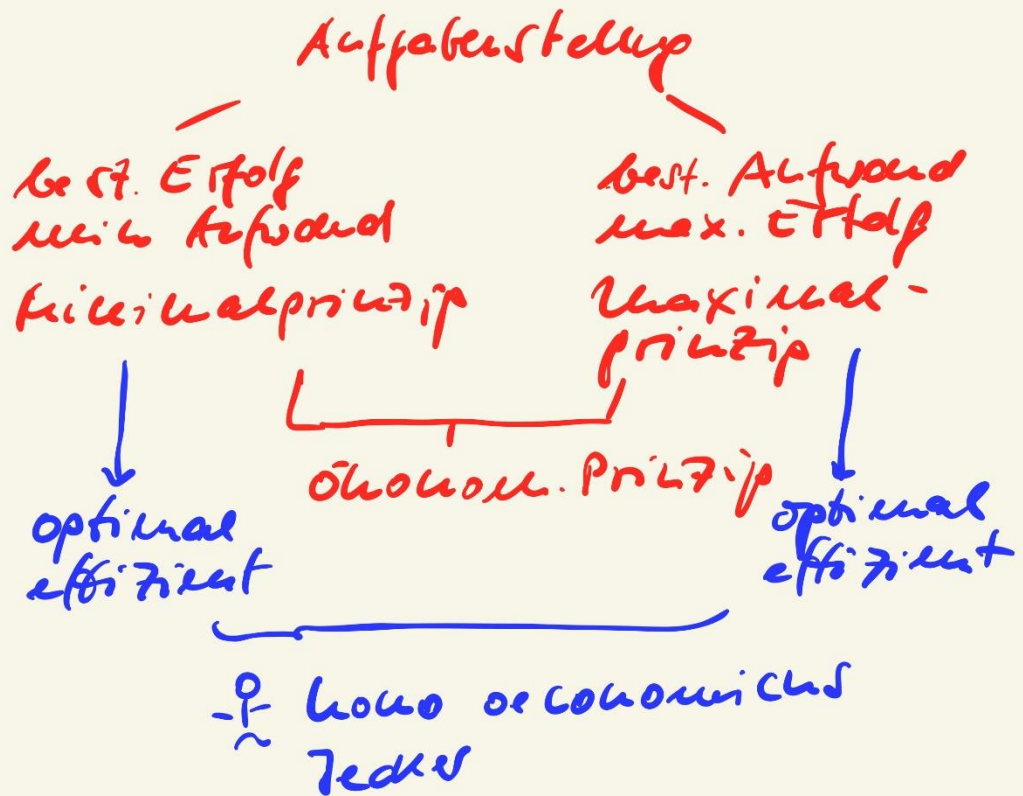 Aufgabenstellung
best. Erfolg
min. Aufwand
Minimalprinzip
best. Aufwand
max. Erfolg
Maximal-
prinzip
ökonom. Prinzip
optimal
effizient
optimal
effizient
homo oeconomicus